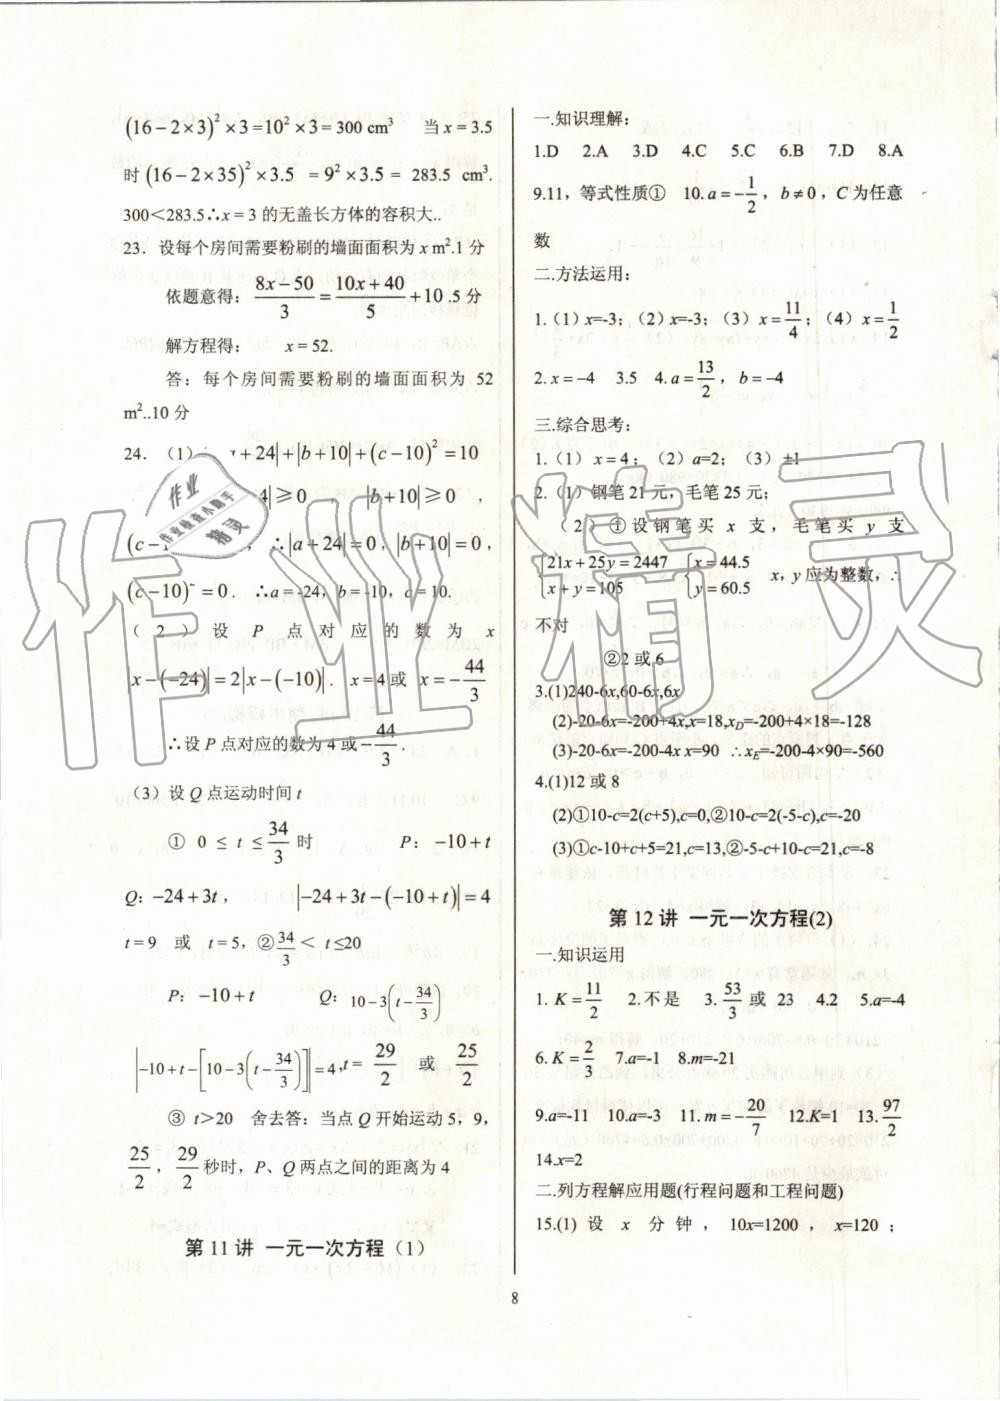 (16－2×3)²×3=10²×3=300 cm³ 当 x = 3.5
时 (16－2×35)²×3.5 = 9²×3.5 = 283.5 cm³.
300＜283.5∴x = 3 的无盖长方体的容积大..
23．设每个房间需要粉刷的墙面面积为 x m².1 分
依题意得: (8x－50)/3 = (10x＋40)/5 ＋10 .5 分
解方程得: x = 52.
答：每个房间需要粉刷的墙面面积为 52
m²..10 分
24．（1） +24|+|b+10|+(c－10)²=10
4|≥0 ， |b+10|≥0 ，
(c－1 ， ∴|a+24|=0，|b+10|=0，
(c－10)²=0． ∴a= -24，b= -10，c = 10.
（2）设 P 点对应的数为 x
|x－(－24)|=2|x－(－10)|． x = 4 或 x = －44/3
∴设 P 点对应的数为 4 或 －44/3 .
（3）设 Q 点运动时间 t
① 0 ≤ t ≤ 34/3 时 P：－10＋t
Q：－24＋3t， |－24＋3t－(－10＋t)|=4
t = 9 或 t = 5，②34/3＜ t ≤20
P：－10＋t Q：10－3(t－34/3)
|－10＋t－[10－3(t－34/3)]|=4,t= 29/2 或 25/2
③ t＞20 舍去答：当点 Q 开始运动 5，9，
25/2，29/2秒时，P、Q 两点之间的距离为 4
第 11 讲 一元一次方程（1）
一.知识理解：
1.D 2.A 3.D 4.C 5.C 6.B 7.D 8.A
9.11，等式性质① 10.a=－1/2，b≠0，C 为任意
数
二.方法运用：
1.（1）x=-3；（2）x=-3；（3）x=11/4；（4）x=1/2
2.x=－4 3.5 4.a=13/2，b=－4
三.综合思考：
1.（1）x=4；（2）a=2；（3）±1
2.（1）钢笔 21 元，毛笔 25 元；
（2）①设钢笔买 x 支，毛笔买 y 支
{21x+25y=2447 {x=44.5 x，y 应为整数，∴
x+y=105 y=60.5
不对
②2 或 6
3.(1)240-6x,60-6x,6x
(2)-20-6x=-200+4x,x=18,x_D=-200+4×18=-128
(3)-20-6x=-200-4x x=90 ∴x_E=-200-4×90=-560
4.(1)12 或 8
(2)①10-c=2(c+5),c=0,②10-c=2(-5-c),c=-20
(3)①c-10+c+5=21,c=13,②-5-c+10-c=21,c=-8
第 12 讲 一元一次方程(2)
一.知识运用
1.K=11/2 2.不是 3.53/3 或 23 4.2 5.a=-4
6.K=2/3 7.a=-1 8.m=-21
9.a=-11 10.a=-3 11.m=－20/7 12.K=1 13.97/2
14.x=2
二.列方程解应用题(行程问题和工程问题)
15.(1) 设 x 分钟， 10x=1200， x=120；
8
作业
作业检查小助手
精灵
作业精灵